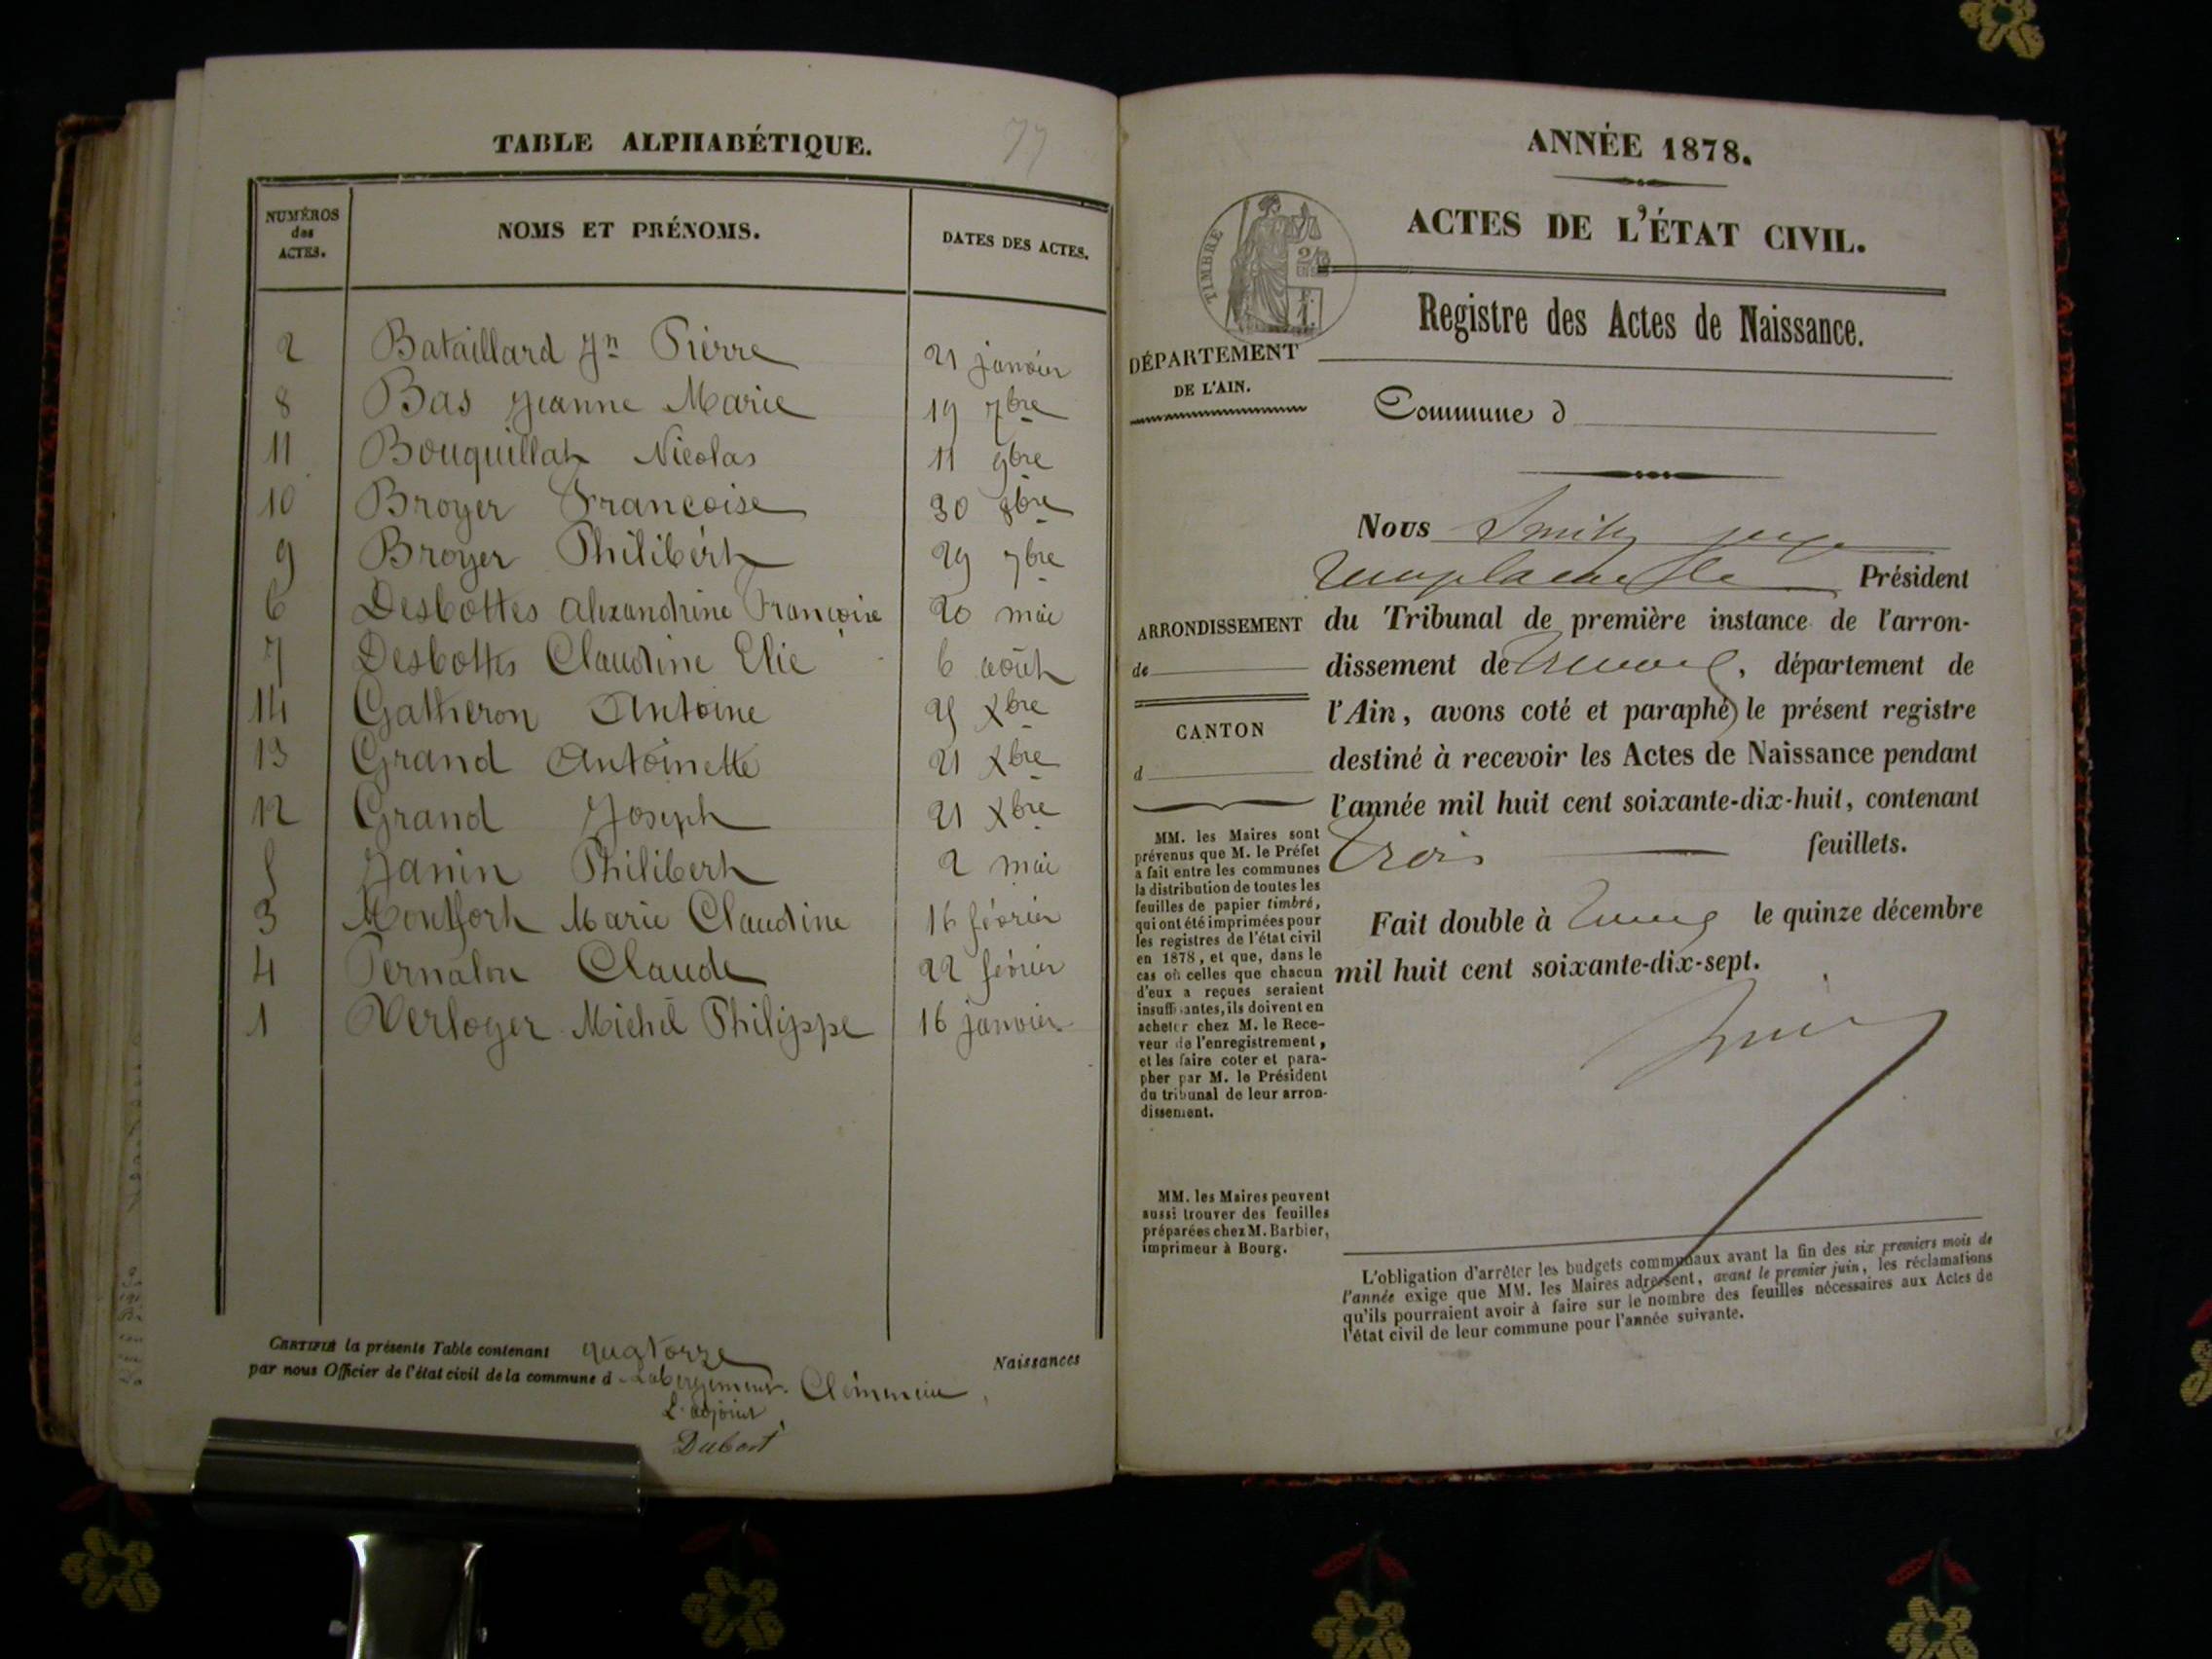 TABLE ALPHABÉTIQUE.
77
NUMÉROS des ACTES. NOMS ET PRÉNOMS. DATES DES ACTES.
2 Bataillard Jn Pierre 21 janvier
8 Bas Jeanne Marie 19 7bre
11 Bouquillat Nicolas 11 9bre
10 Broyer Francoise 30 8bre
9 Broyer Philibert 29 7bre
6 Desbottes Alexandrine Francoise 20 mai
7 Desbottes Claudine Elie 6 août
14 Gatheron Antoine Xbre
13 Grand Antoinette 21 Xbre
12 Grand Joseph 21 Xbre
5 Janin Philibert 2 mai
3 Montfort Marie Claudine 16 février
4 Pernalon Claude 22 février
1 Verloger Michel Philippe 16 janvier
CERTIFIÉ la présente Table contenant quatorze Naissances
par nous Officier de l'état civil de la commune d Labergement Clémenciat,
L'adjoint
Dubost
ANNÉE 1878.
ACTES DE L'ÉTAT CIVIL.
TIMBRE
Registre des Actes de Naissance.
DÉPARTEMENT
DE L'AIN.
Commune d
Nous Smith juge
remplaçant le Président
ARRONDISSEMENT
de
CANTON
d
du Tribunal de première instance de l'arron-
dissement de Trévoux, département de
l'Ain, avons coté et paraphé le présent registre
destiné à recevoir les Actes de Naissance pendant
l'année mil huit cent soixante-dix-huit, contenant
trois feuillets.
Fait double à le quinze décembre
mil huit cent soixante-dix-sept.
MM. les Maires sont
prévenus que M. le Préfet
a fait entre les communes
la distribution de toutes les
feuilles de papier timbré,
qui ont été imprimées pour
les registres de l'état civil
en 1878, et que, dans le
cas où celles que chacun
d'eux a reçues seraient
insuffisantes, ils doivent en
acheter chez M. le Rece-
veur de l'enregistrement,
et les faire coter et para-
pher par M. le Président
du tribunal de leur arron-
dissement.
MM. les Maires peuvent
aussi trouver des feuilles
préparées chez M. Barbier,
imprimeur à Bourg.
L'obligation d'arrêter les budgets communaux avant la fin des six premiers mois de
l'année exige que MM. les Maires adressent, avant le premier juin, les réclamations
qu'ils pourraient avoir à faire sur le nombre des feuilles nécessaires aux Actes de
l'état civil de leur commune pour l'année suivante.